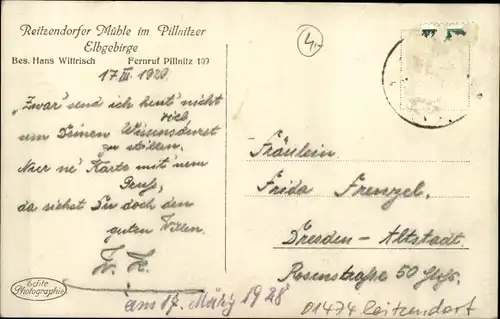 Reitzendorfer Mühle im Pillnitzer
Elbgebirge
Bes. Hans Wittrisch Fernruf Pillnitz 139
17 III. 1928
„Zwar send ich heut' nicht
viel,
um Deinen Wissensdurst
zu stillen.
Nur ne' Karte mit 'nem
Gruß,
da siehst Du doch den
guten Willen.
Fräulein
Frida Frenzel.
Dresden-Altstadt.
Rosenstraße 50
Echte
Photographie
am 17. März 1928
01474 Reitzendorf